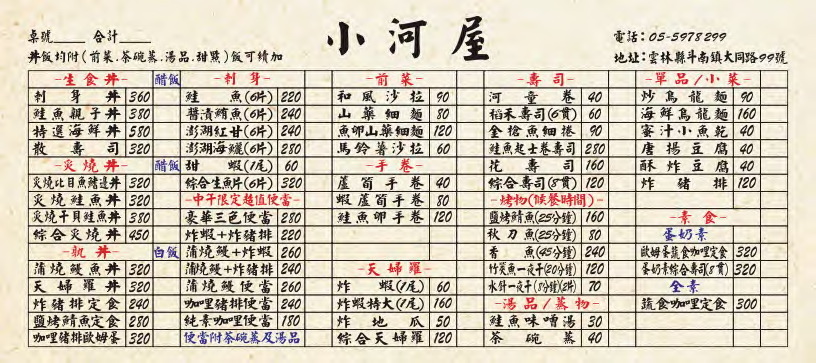 小河屋
桌號____ 合計____
丼飯均附(前菜.茶碗蒸.湯品.甜點)飯可續加
電話:05-5978299
地址:雲林縣斗南鎮大同路99號
-生食丼- 醋飯
刺身丼 360
鮭魚親子丼 380
特選海鮮丼 580
散壽司 320
-炙燒丼- 醋飯
炙燒比目魚鰭邊丼 320
炙燒鮭魚丼 320
炙燒干貝鮭魚丼 380
綜合炙燒丼 450
-熟丼- 白飯
蒲燒鰻魚丼 320
天婦羅丼 320
炸豬排定食 240
鹽烤鯖魚定食 280
咖哩豬排歐姆蛋 320
-刺身-
鮭魚(6片) 220
醬漬鮪魚(6片) 240
澎湖紅甘(6片) 240
澎湖海鱺(6片) 280
甜蝦(1尾) 60
綜合生魚片(6片) 320
-中午限定超值便當-
豪華三色便當 280
炸蝦+炸豬排 220
蒲燒鰻+炸蝦 260
蒲燒鰻+炸豬排 240
蒲燒鰻便當 260
咖哩豬排便當 240
純素咖哩便當 180
便當附茶碗蒸及湯品
-前菜-
和風沙拉 90
山藥細麵 80
魚卵山藥細麵 120
馬鈴薯沙拉 60
-手卷-
蘆筍手卷 40
蝦蘆筍手卷 80
鮭魚卵手卷 120
-天婦羅-
炸蝦(1尾) 60
炸蝦特大(1尾) 160
炸地瓜 50
綜合天婦羅 120
-壽司-
河童卷 40
稻禾壽司(6貫) 60
全鮪魚細捲 90
鮭魚起士卷壽司 280
花壽司 160
綜合壽司(8貫) 120
-烤物(候餐時間)-
鹽烤鯖魚(25分鐘) 160
秋刀魚(25分鐘) 80
香魚(45分鐘) 240
竹筴魚一夜干(20分鐘) 120
水針一夜干(8分鐘)(2片) 70
-湯品/蒸物-
鮭魚味噌湯 30
茶碗蒸 40
-單品/小菜-
炒烏龍麵 90
海鮮烏龍麵 160
蜜汁小魚乾 40
唐揚豆腐 40
酥炸豆腐 40
炸豬排 120
-素食-
蛋奶素
歐姆蛋蔬食咖哩定食 320
蛋奶素綜合壽司(8貫) 320
全素
蔬食咖哩定食 300